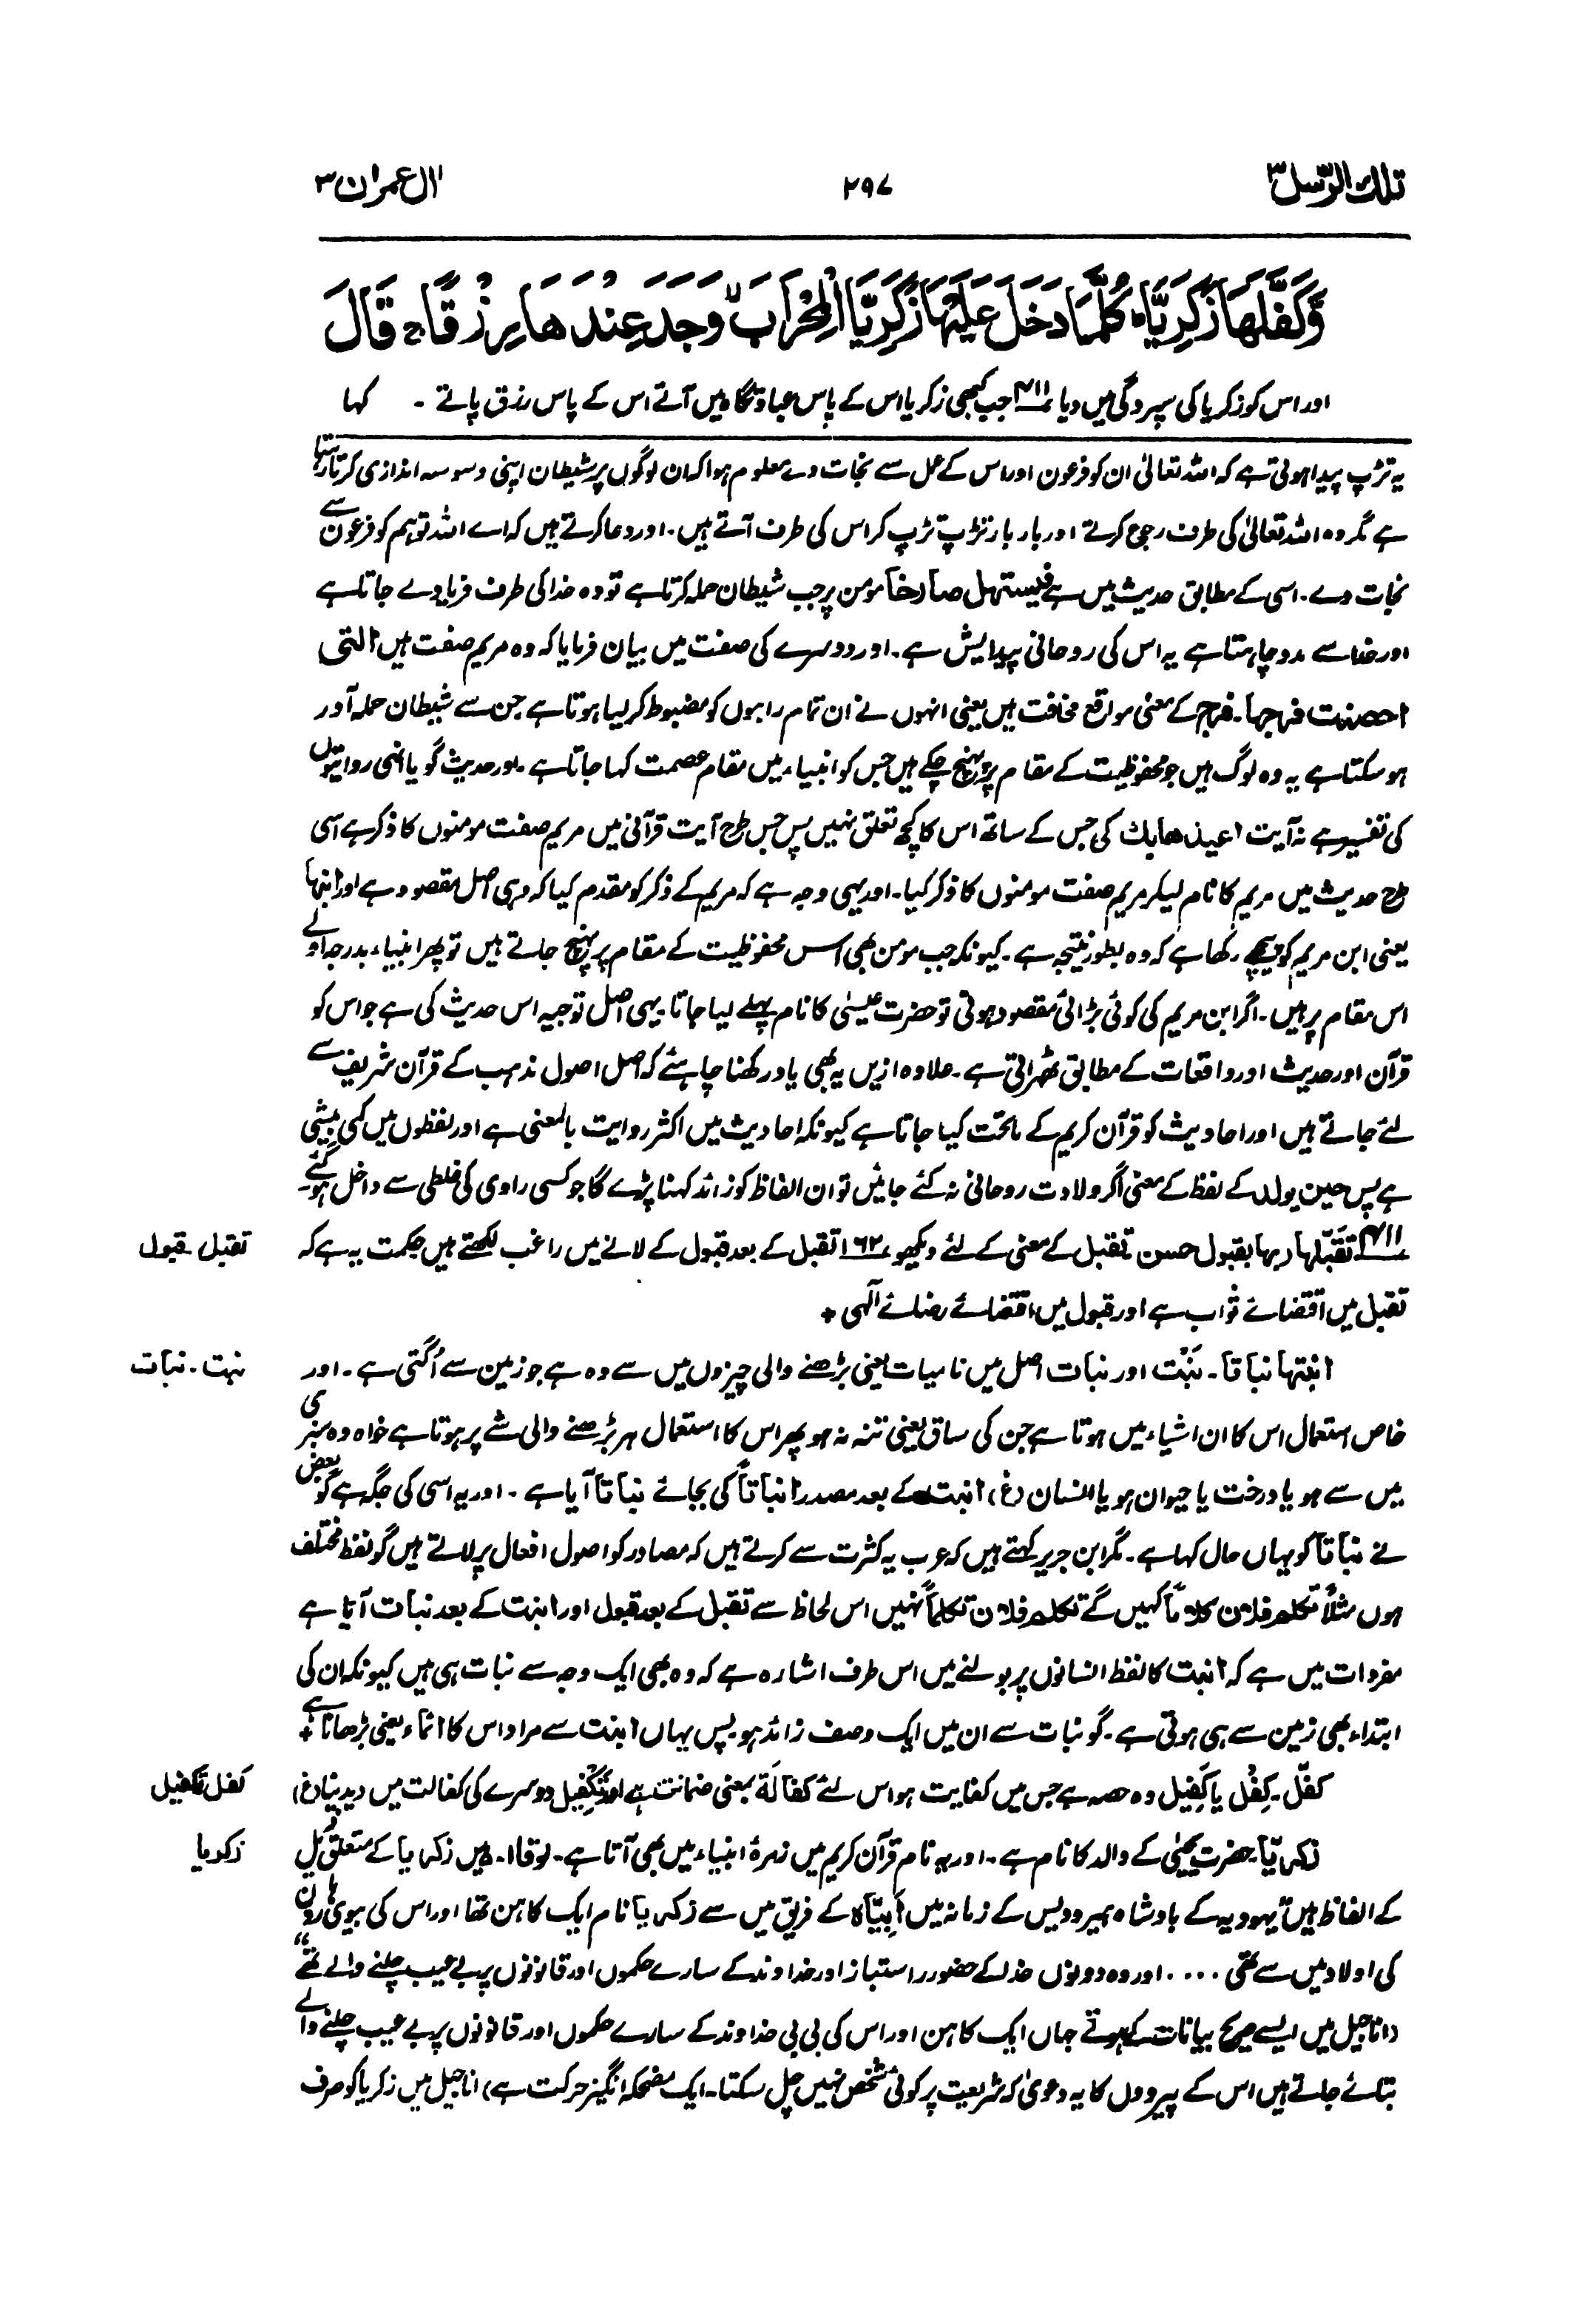 تلك الرسل ۳
۲۹۷
اٰل عمران ۳
وَّكَفَّلَهَا زَكَرِيَّا ؕ كُلَّمَا دَخَلَ عَلَيْهَا زَكَرِيَّا الْمِحْرَابَ ۙ وَجَدَ عِنْدَهَا رِزْقًا ۚ قَالَ
اور اس کو زکریا کی سپردگی میں دیا ۴۱۱ جب کبھی زکریا اس کے پاس عبادتگاہ میں آتے اس کے پاس رزق پاتے ۔ کہا
یہ تڑپ پیدا ہوتی ہے کہ اللہ تعالیٰ ان کو فرعون اور اس کے عمل سے نجات دے معلوم ہوا کہ ان لوگوں پر شیطان اپنی وسوسہ اندازی کرتا رہتا
ہے مگر وہ اللہ تعالیٰ کی طرف رجوع کرتے اور بار بار تڑپ تڑپ کر اس کی طرف آتے ہیں ۔ اور دعا کرتے ہیں کہ اے اللہ تو ہم کو فرعون سے
نجات دے ۔ اسی کے مطابق حدیث میں ہے فیستهل صارخاً مومن پر جب شیطان حملہ کرتا ہے تو وہ خدا کی طرف فریادے جاتا ہے
اور خدا سے مدد چاہتا ہے یہ اس کی روحانی پیدایش ہے ۔ اور دوسرے کی صفت میں بیان فرمایا کہ وہ مریم صفت ہیں التی
احصنت فرجها ۔ فرج کے معنی مواقع مخافت ہیں یعنی انہوں نے ان تمام راہوں کو مضبوط کر لیا ہوتا ہے جن سے شیطان حملہ آور
ہو سکتا ہے یہ وہ لوگ ہیں جو محفوظیت کے مقام پر پہنچ چکے ہیں جس کو انبیاء میں مقام عصمت کہا جاتا ہے ۔ اور حدیث گویا انہی روایتوں
کی تفسیر ہے نہ آیت اعیذها بك کی جس کے ساتھ اس کا کچھ تعلق نہیں پس جس طرح آیت قرآنی میں مریم صفت مومنوں کا ذکر ہے اسی
طرح حدیث میں مریم کا نام لیکر مریم صفت مومنوں کا ذکر کیا ۔ اور یہی وجہ ہے کہ مریم کے ذکر کو مقدم کیا کہ وہی اصل مقصود ہے اور ابنہا
یعنی ابن مریم کو پیچھے رکھا ہے کہ وہ بطور نتیجہ ہے ۔ کیونکہ جب مومن بھی اس محفوظیت کے مقام پر پہنچ جاتے ہیں تو پھر انبیاء بدرجہ اولے
اس مقام پر ہیں ۔ اگر ابن مریم کی کوئی بڑائی مقصود ہوتی تو حضرت عیسٰی کا نام پہلے لیا جاتا ۔ یہی اصل توجیہ اس حدیث کی ہے جو اس کو
قرآن اور حدیث اور واقعات کے مطابق ٹھہراتی ہے ۔ علاوہ ازیں یہ بھی یاد رکھنا چاہئے کہ اصل اصول مذہب کے قرآن شریف سے
لئے جاتے ہیں اور احادیث کو قرآن کریم کے ماتحت کیا جاتا ہے کیونکہ احادیث میں اکثر روایت بالمعنی ہے اور لفظوں میں کمی بیشی
ہے پس حین یولد کے لفظ کے معنی اگر ولادت روحانی نہ کئے جائیں تو ان الفاظ کو زائد کہنا پڑے گا جو کسی راوی کی غلطی سے داخل ہو گئے ۔
۴۱۱ تقبّلها ربها بقبول حسن تقبل کے معنی کے لئے دیکھو ۱۶۲ تقبل کے بعد قبول کے لانے میں راغب لکھتے ہیں حکمت یہ ہے کہ
تقبل ۔ قبول
تقبل میں اقتضائے ثواب ہے اور قبول میں اقتضائے رضائے الٰہی +
انبتها نباتا ۔ نَبْت اور نبات اصل میں نامیات یعنی بڑھنے والی چیزوں میں سے وہ ہے جو زمین سے اُگتی ہے ۔ اور
نبت ۔ نبات
خاص استعمال اس کا ان اشیاء میں ہوتا ہے جن کی ساق یعنی تنہ نہ ہو پھر اس کا استعمال ہر بڑھنے والی شے پر ہوتا ہے خواہ وہ سبزی
میں سے ہو یا درخت یا حیوان ہو یا انسان (غ) انبت کے بعد مصدر انباتاً کی بجائے نباتا آیا ہے ۔ اور یہ اسی کی جگہ ہے گو بعض
نے نباتاً کو یہاں حال کہا ہے ۔ مگر ابن جریر کہتے ہیں کہ عرب یہ کثرت سے کرتے ہیں کہ مصادر کو اصول افعال پر لاتے ہیں گو لفظ مختلف
ہوں مثلاً تکلم فلان کلاماً کہیں گے تکلم فلان تکلماً نہیں اس لحاظ سے تقبل کے بعد قبول اور انبت کے بعد نبات آیا ہے
مفردات میں ہے کہ انبت کا لفظ انسانوں پر بولنے میں اس طرف اشارہ ہے کہ وہ بھی ایک وجہ سے نبات ہی ہیں کیونکہ ان کی
ابتداء بھی زمین سے ہی ہوتی ہے ۔ گو نبات سے ان میں ایک وصف زائد ہو پس یہاں انبت سے مراد اس کا انماء یعنی بڑھانا ہے +
کفّل ۔ کِفْل یا کَفِیل وہ حصہ ہے جس میں کفایت ہو اس لئے کفالَة بمعنی ضمانت ہے اور تَکْفِیل دوسرے کی کفالت میں دیدینا (غ)
کفل تکفیل
زکریّا ۔ حضرت یحییٰ کے والد کا نام ہے ۔ اور یہ نام قرآن کریم میں زمرۂ انبیاء میں بھی آتا ہے ۔ لوقا ۱ ۔ ۵ میں زکریا کے متعلق بائبل
زکریا
کے الفاظ ہیں "یہودیہ کے بادشاہ ہیرودیس کے زمانہ میں اَبِیّاہ کے فریق میں سے زکریا نام ایک کاہن تھا اور اس کی بیوی ہارون
کی اولاد میں سے تھی .... اور وہ دونوں خدا کے حضور راستباز اور خداوند کے سارے حکموں اور قانونوں پر بے عیب چلنے والے تھے"
(اناجیل میں ایسے صریح بیانات کے ہوتے جہاں ایک کاہن اور اس کی بی بی خداوند کے سارے حکموں اور قانونوں پر بے عیب چلنے والے
بتائے جاتے ہیں اس کے پیروول کا یہ دعویٰ کہ شریعت پر کوئی شخص نہیں چل سکتا ۔ ایک مضحکہ انگیز حرکت ہے) اناجیل میں زکریا کو صرف